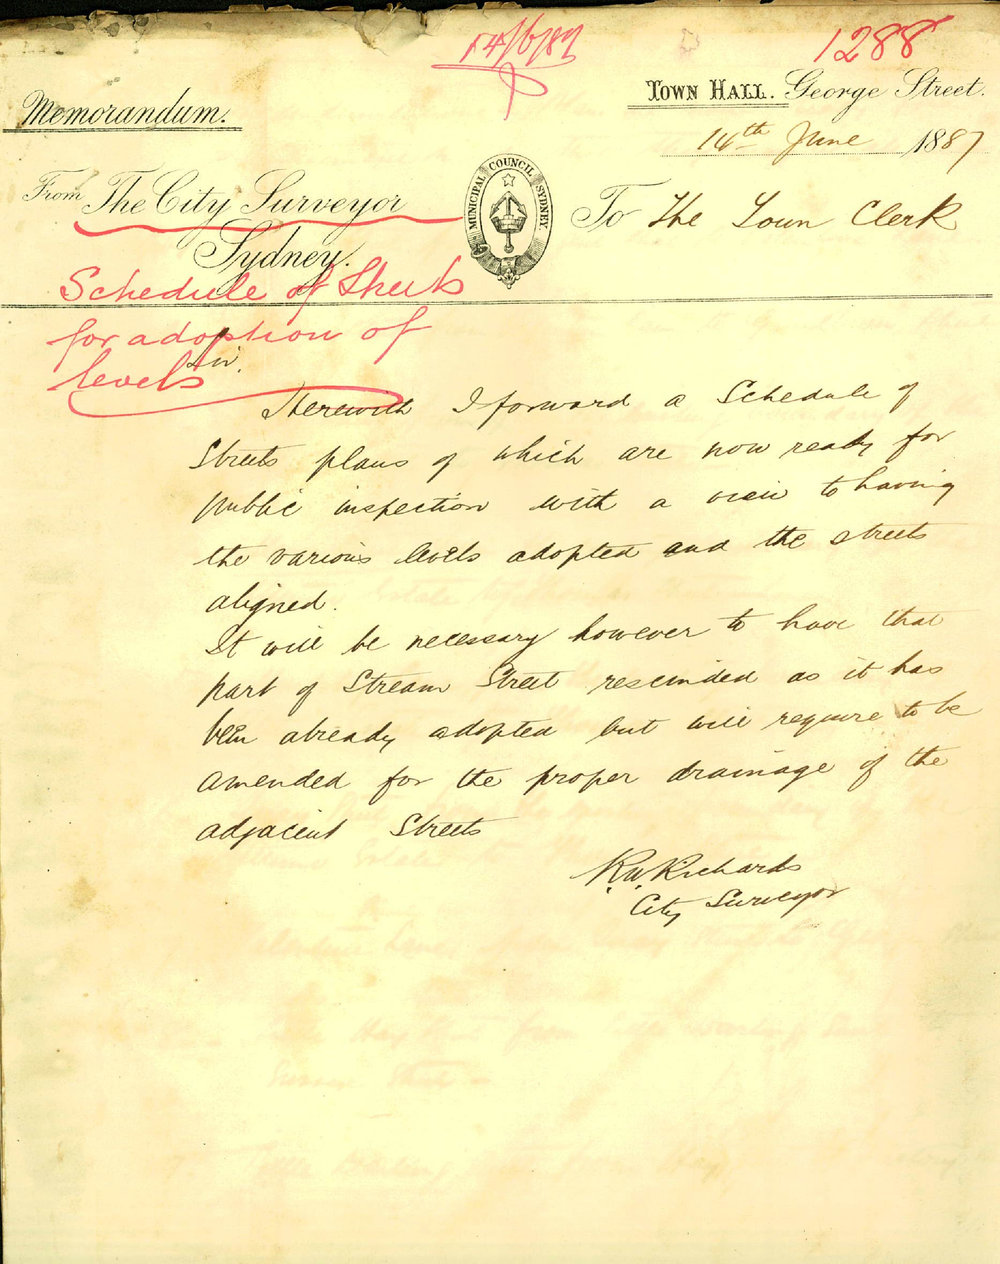 14/6/87
1288
Memorandum.
TOWN HALL. George Street.
14th June 1887
From The City Surveyor
Sydney.
MUNICIPAL COUNCIL SYDNEY
To The Town Clerk
Schedule of Streets
for adoption of
levels
Sir.
Herewith I forward a Schedule of
Streets plans of which are now ready for
public inspection with a view to having
the various levels adopted and the streets
aligned.
It will be necessary however to have that
part of Stream Street rescinded as it has
been already adopted but will require to be
amended for the proper drainage of the
adjacent Streets
R.W. Richards
City Surveyor